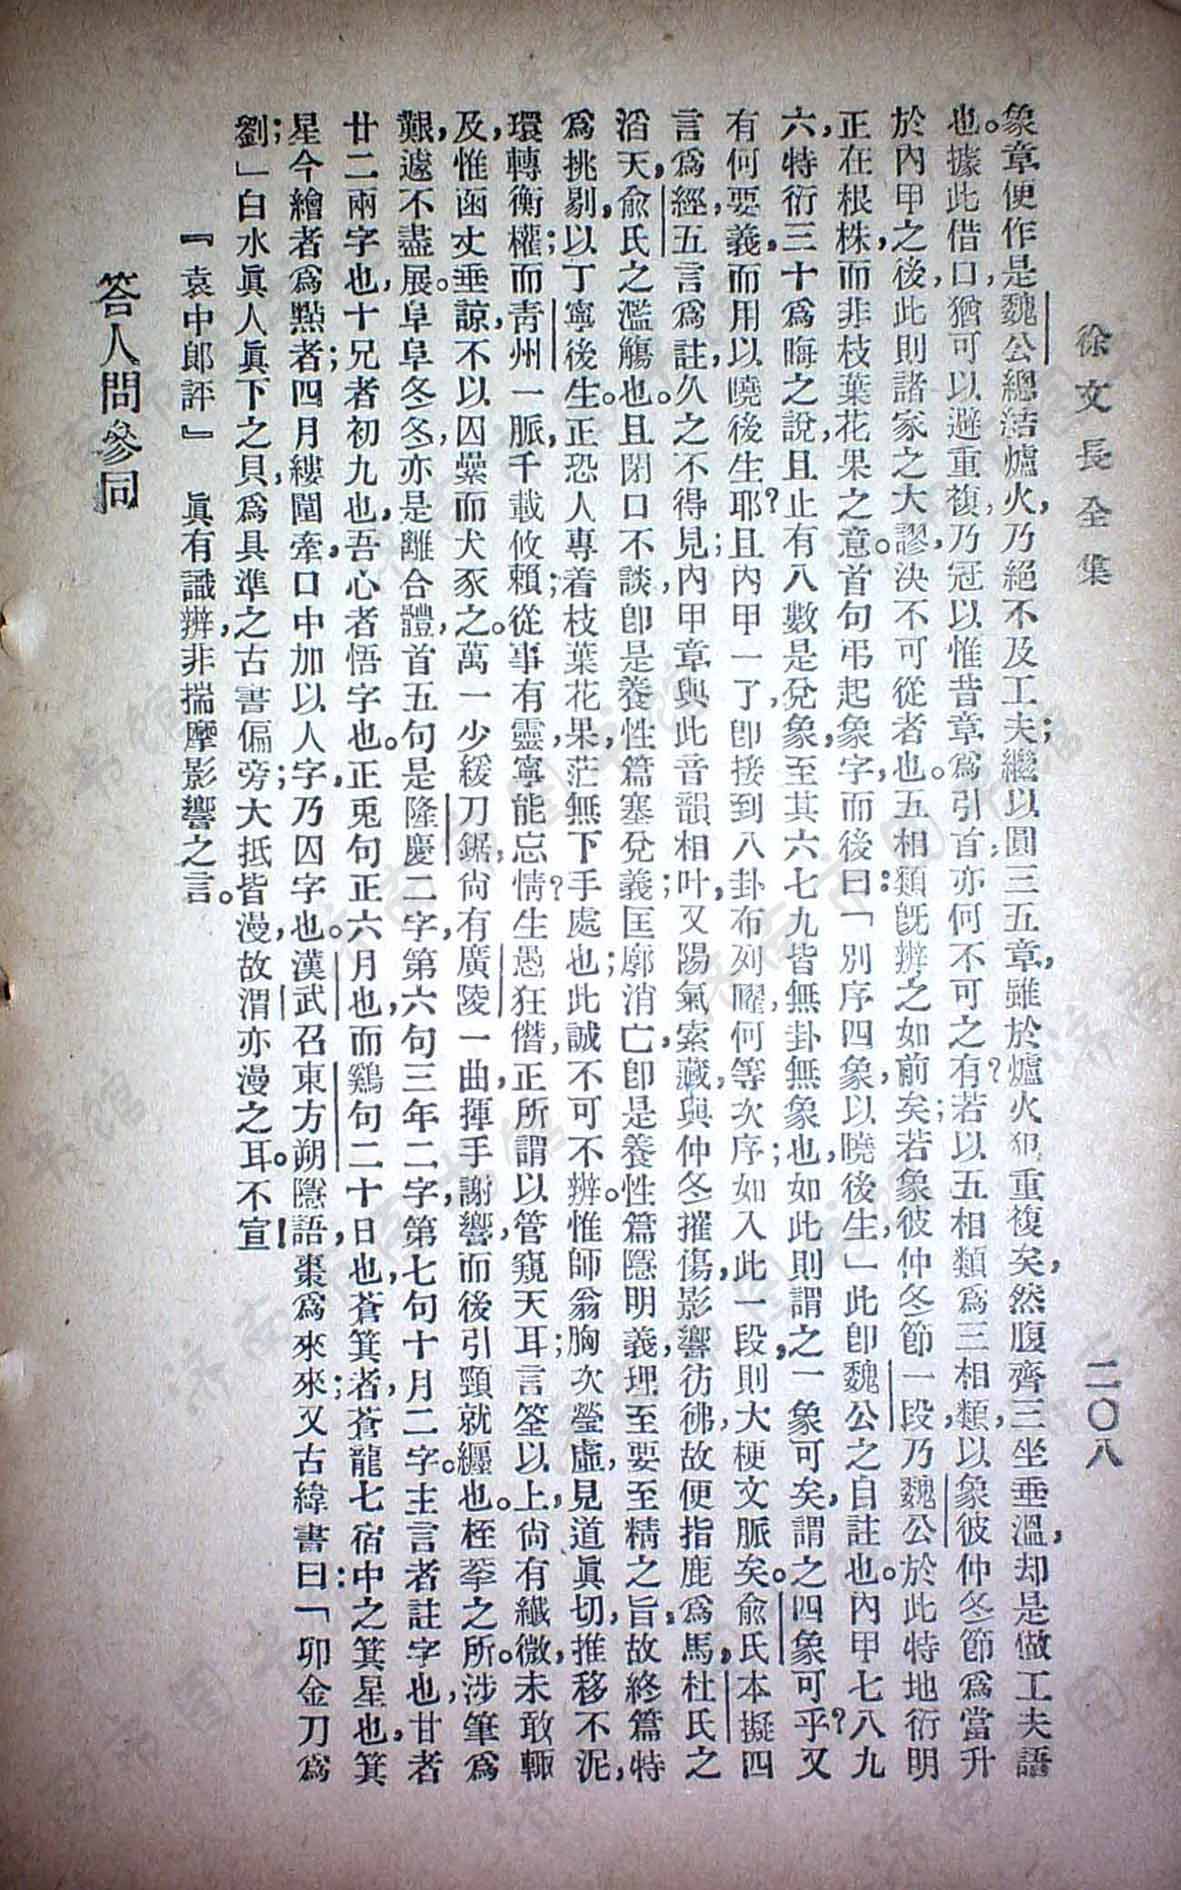 徐文長全集
二〇八
象章便作是魏公總結爐火乃絕不及工夫；繼以圓三五章，雖於爐火犯重複矣，然腹齊三坐垂溫，却是做工夫語
也。據此借口，猶可以避重複，乃冠以惟昔章爲引首，亦何不可之有？若以五相類爲三相類，以象彼仲冬節爲當升
於內甲之後，此則諸家之大謬，決不可從者也。五相類旣辨之如前矣；若象彼仲冬節一段，乃魏公於此特地衍明
正在根株，而非枝葉花果之意。首句弔起象字，而後曰：「別序四象，以曉後生」此卽魏公之自註也。內甲七八九
六，特衍三十爲晦之說，且止有八數是兌象，至其六七九皆無卦無象也；如此則謂之一象可矣，謂之四象可乎？又
有何要義，而用以曉後生耶？且內甲一了，卽接到八卦布列曜，何等次序；如入此一段，則大梗文脈矣。俞氏本擬四
言爲經，五言爲註，久之不得見；內甲章與此音韻相叶，又陽氣索藏，與仲冬摧傷，影響彷彿，故便指鹿爲馬，杜氏之
滔天，俞氏之濫觴也。且閉口不談，卽是養性篇塞兌義；匡廓消亡，卽是養性篇隱明義，理至要至精之旨，故終篇特
爲挑剔，以丁寧後生。正恐人專着枝葉花果，茫無下手處也；此誠不可不辨。惟師翁胸次瑩虛，見道眞切，推移不泥，
環轉衡權；而靑州一脈，千載攸賴；從事有靈，寧能忘情？生愚狂僭，正所謂以管窺天耳；言筌以上，尙有纖微，未敢輒
及，惟函丈垂諒，不以囚纍而犬豕之。萬一少緩刀鋸，尙有廣陵一曲，揮手謝響，而後引頸就纒也。桎莘之所，涉筆爲
艱，遽不盡展。阜阜冬冬，亦是離合體，首五句是隆慶二字，第六句三年二字，第七句十月二字。主言者註字也，甘者
廿二兩字也，十兄者初九也，吾心者悟字也。正兎句正六月也，而鷄句二十日也，蒼箕者，蒼龍七宿中之箕星也，箕
星今繪者爲㸃者；四月縷圍，牽口中加以人字，乃囚字也。漢武召東方朔隱語，棗爲來來；又古緯書曰：「卯金刀爲
劉；」白水眞人眞下之貝，爲具準之古書偏旁；大抵皆漫，故渭亦漫之耳。不宣！
『袁中郎評』　眞有識辨，非揣摩影響之言。
答人問參同